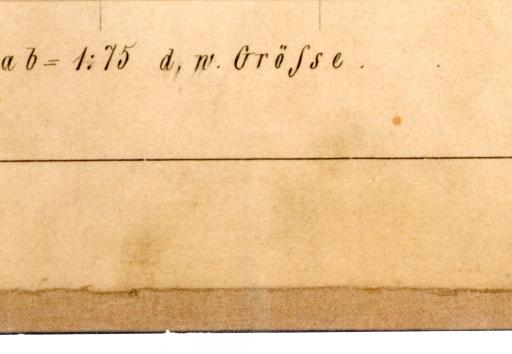 ab = 1:75 d. w. Grösse.